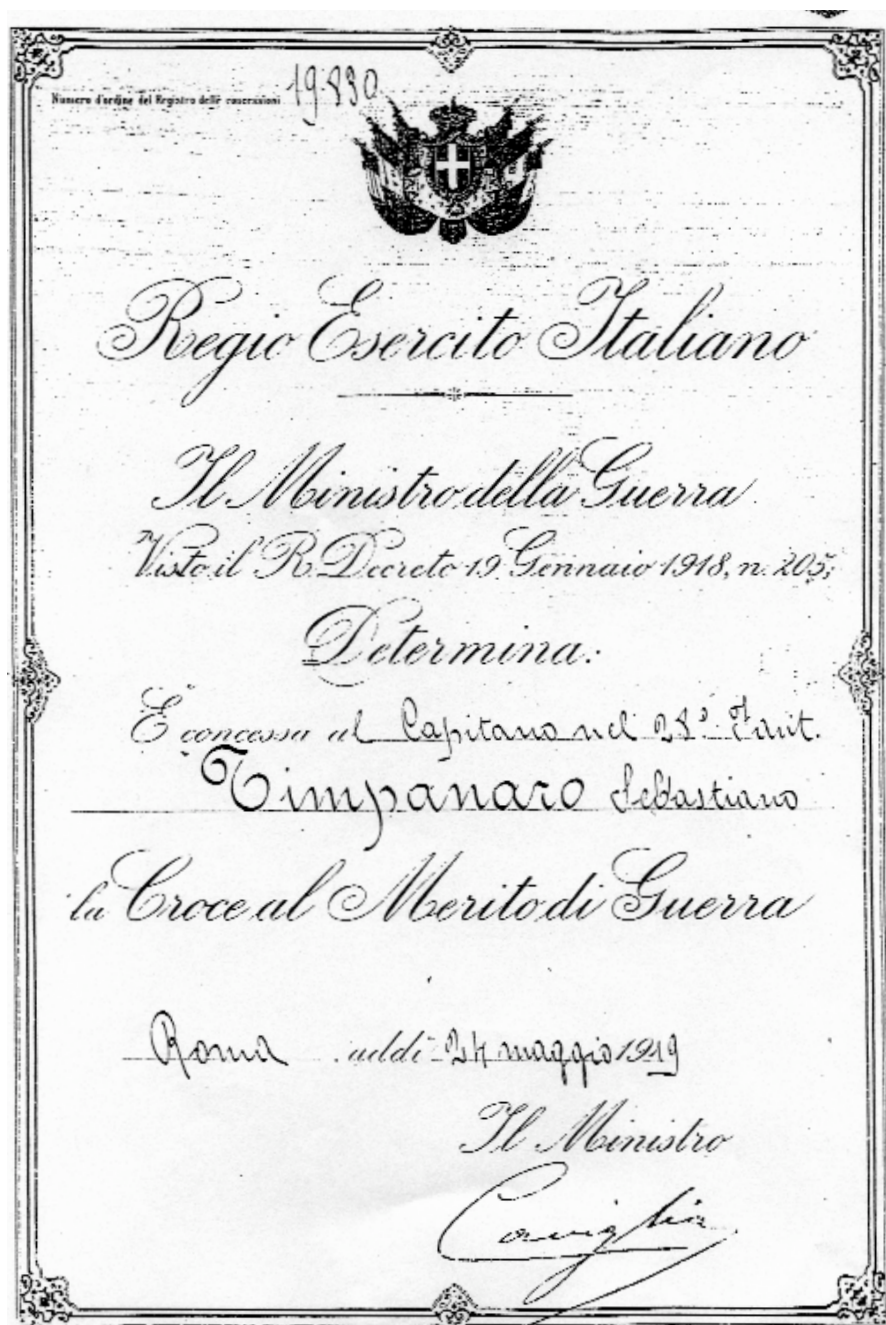 Numero d'ordine del Registro delle concessioni 19830
Regio Esercito Italiano
Il Ministro della Guerra
Visto il R. Decreto 19 Gennaio 1918, n. 205;
Determina:
È concessa al Capitano nel 28° Fant.
Timpanaro Sebastiano
la Croce al Merito di Guerra
Roma addì 24 maggio 1919
Il Ministro
Caviglia